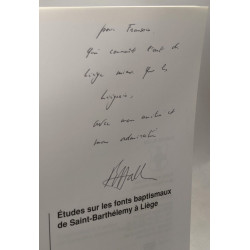 pour
qui connait tout de
Liège mieux que les
Liégeois,
avec mon amitié et
mon admiration
Études sur les fonts baptismaux
de Saint-Barthélemy à Liège